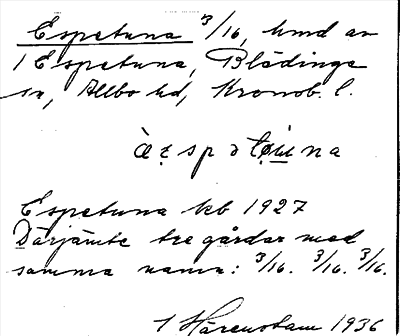 Espetuna 3/16, hmd av
1 Espetuna, Blädinge
sn, Allbo hd, Kronob. l.
Espetuna kb 1927
Därjämte tre gårdar med
samma namn: 3/16. 3/16. 3/16.
1 Härenstam 1936